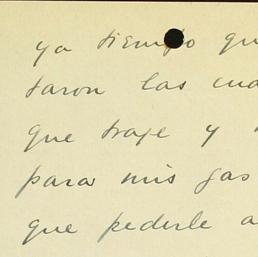 ya tiempo qu
taron las cua
que traje y
para mis gas
que pederle a